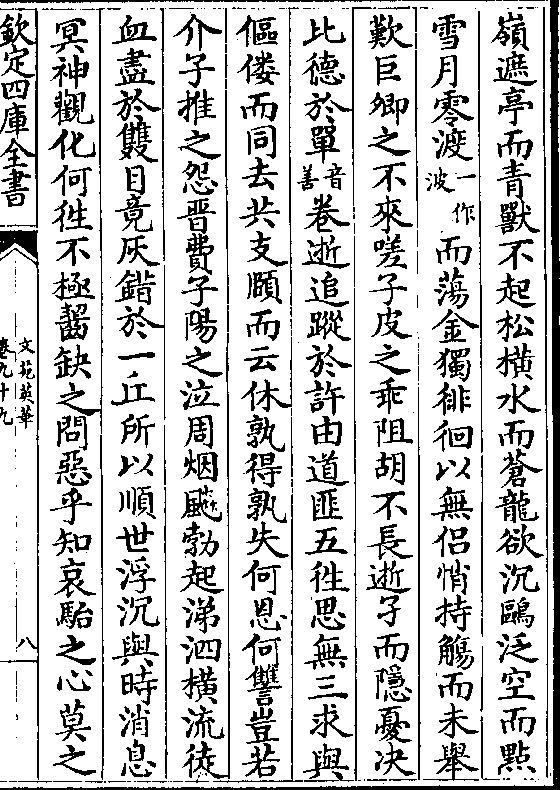 嶺遮亭而青獸不起松橫水而蒼龍欲沉鷗泛空而點
雪月零渡一作波而蕩金獨徘徊以無侶悄持觴而未舉
歎巨卿之不來嗟子皮之乖阻胡不長逝子而隱憂决
比德於單音善卷逝追蹤於許由道匪五徃思無三求與
傴僂而同去共支頤而云休孰得孰失何恩何讐豈若
介子推之怨晋費子陽之泣周烟飈勃起涕泗橫流徒
血盡於雙目竟灰錯於一丘所以順世浮沉與時消息
冥神觀化何徃不極齧缺之問惡乎知哀駘之心莫之
欽定四庫全書
文苑英華
卷九十九
八